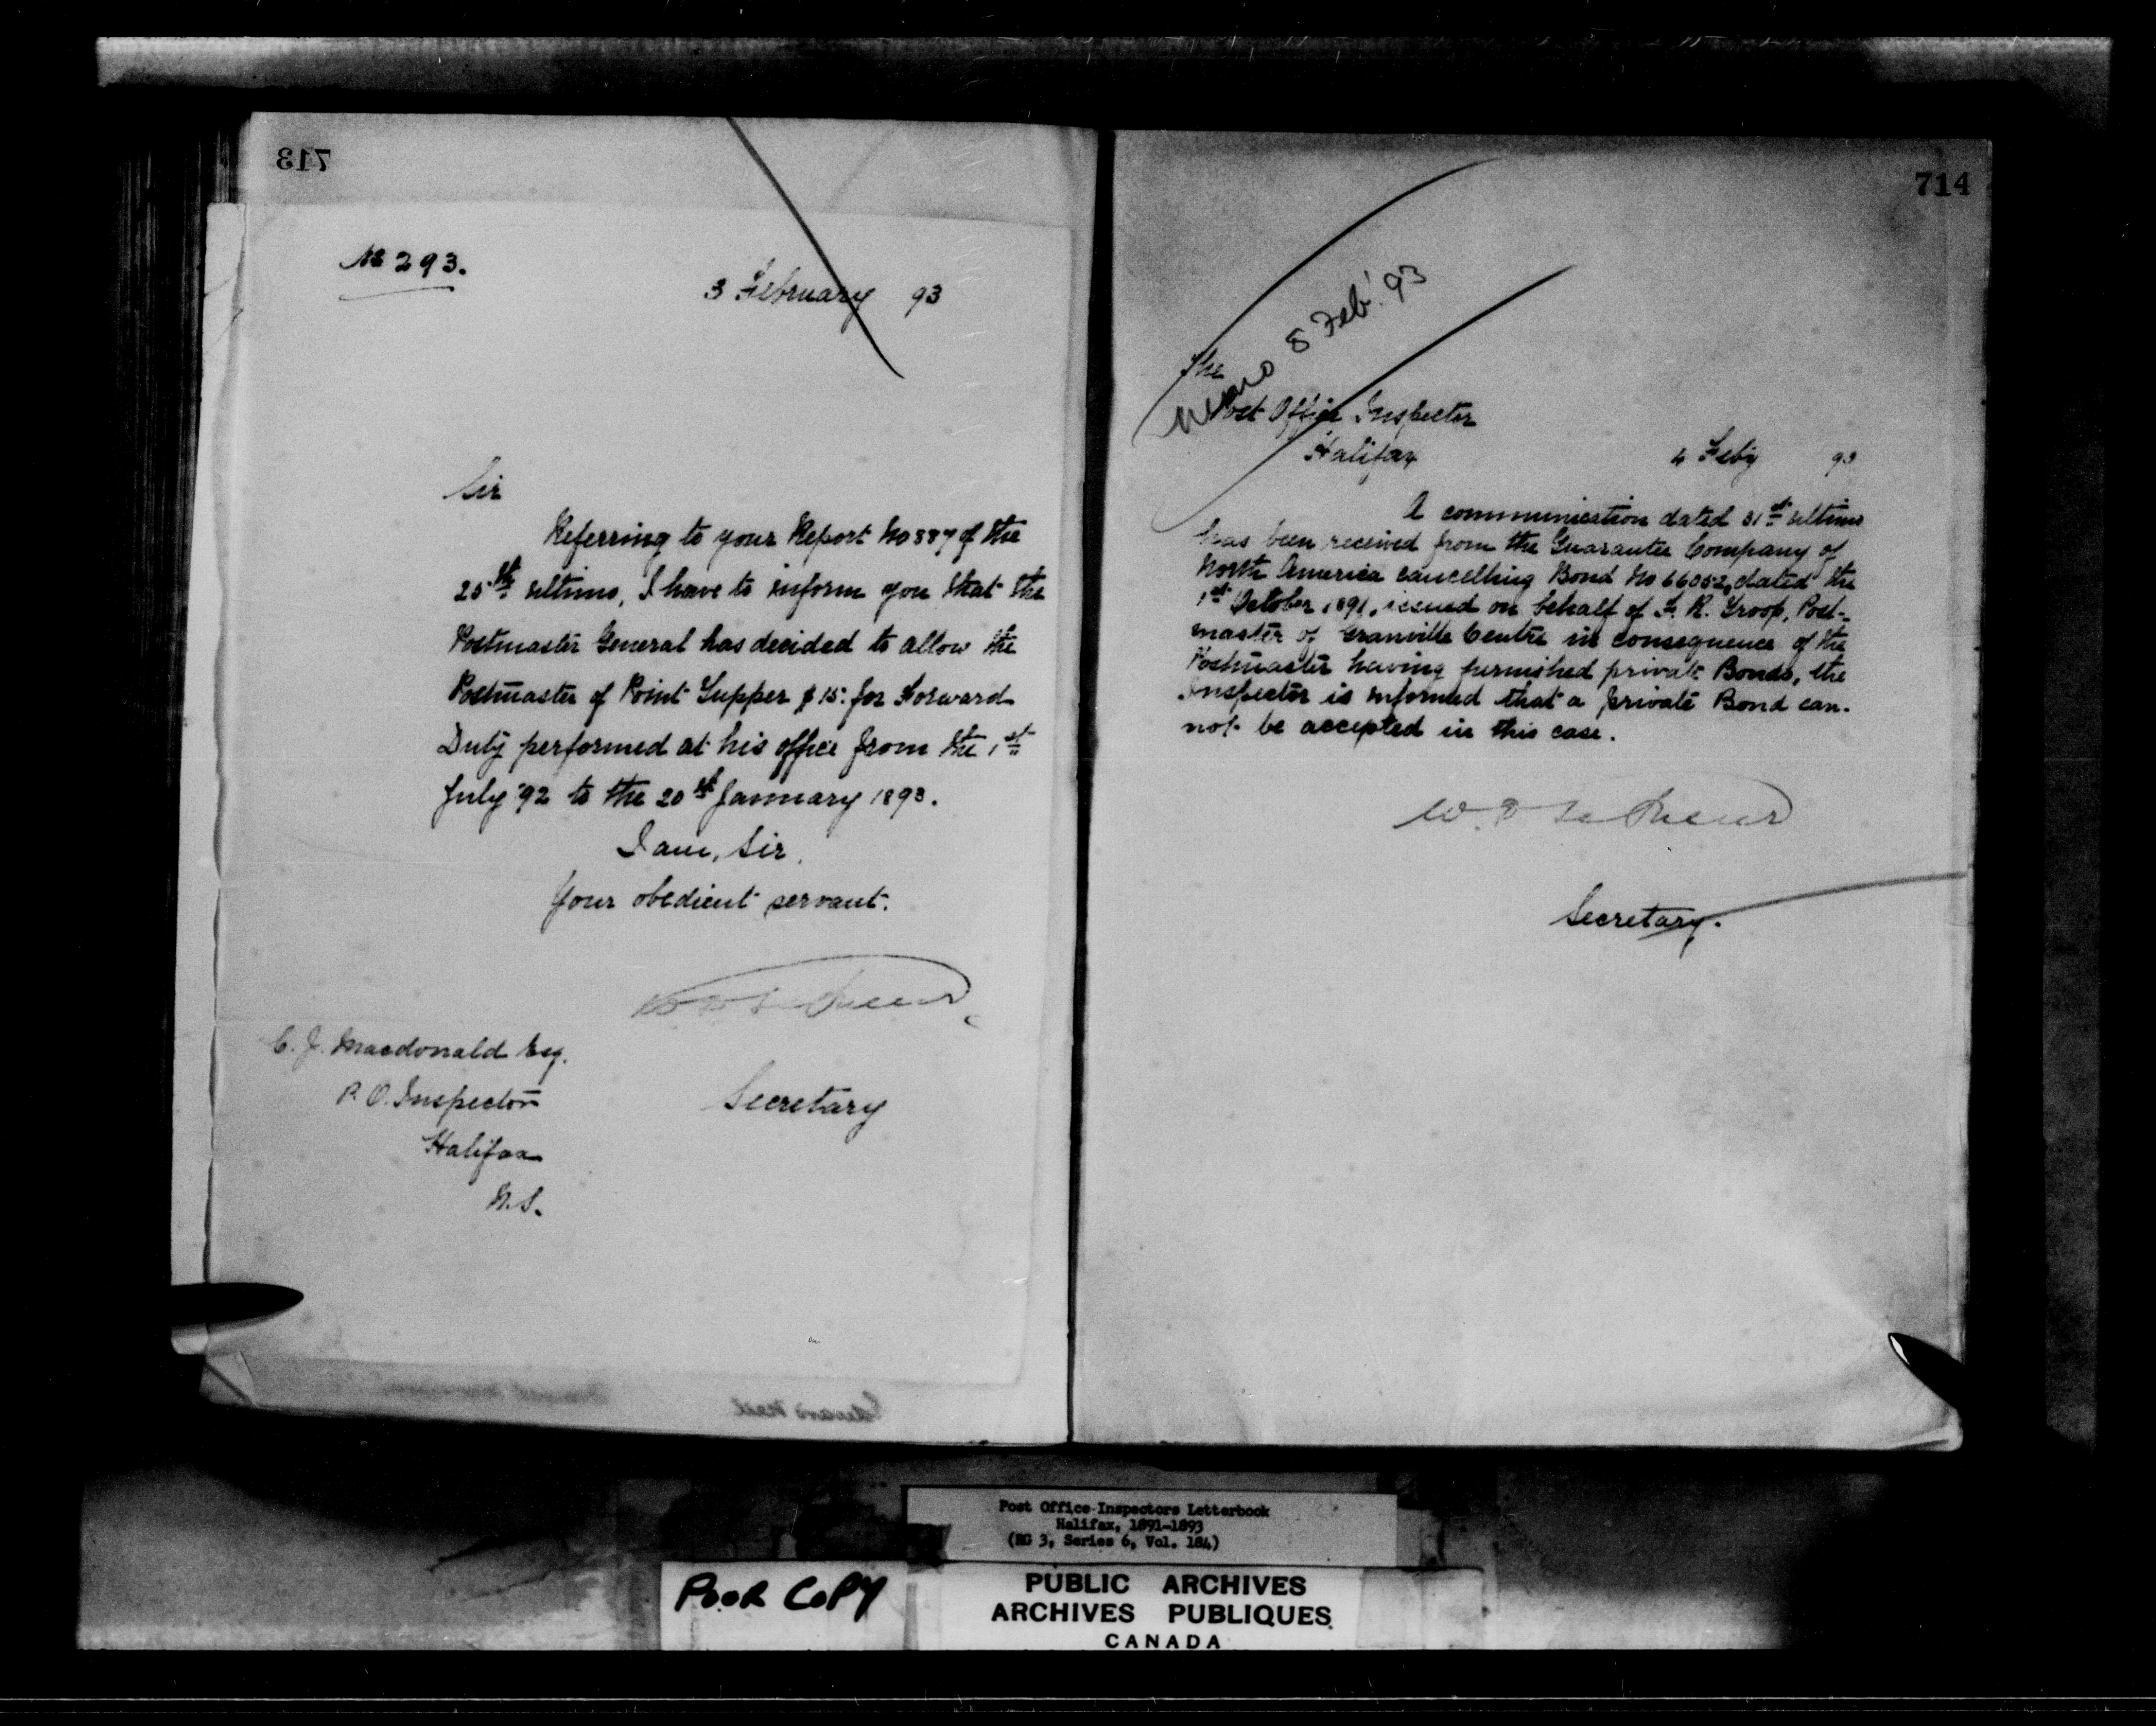 713
No 293.
3 February 93
Sir
Referring to your Report No 887 of the
25th ultimo, I have to inform you that the
Postmaster General has decided to allow the
Postmaster of Point Tupper $15: for Forward
Duty performed at his office from the 1st
July '92 to the 20th January 1893.
I am, Sir,
Your obedient servant.
Secretary
C. J. Macdonald Esq.
P. O. Inspector
Halifax
N.S.
714
8 Feb'. 93
The
Post Office Inspector
Halifax
4 Feby 93
A communication dated 31st ultimo
has been received from the Guarantee Company of
North America cancelling Bond No 66052, dated the
1st October 1891, issued on behalf of F. R. Troop, Post-
master of Granville Centre in consequence of the
Postmaster having furnished private Bonds, the
Inspector is informed that a private Bond can-
not be accepted in this case.
W. D. Le Sueur
Secretary.
Post Office Inspectors Letterbook
Halifax, 1891-1893
(RG 3, Series 6, Vol. 184)
POOR COPY
PUBLIC ARCHIVES
ARCHIVES PUBLIQUES
CANADA